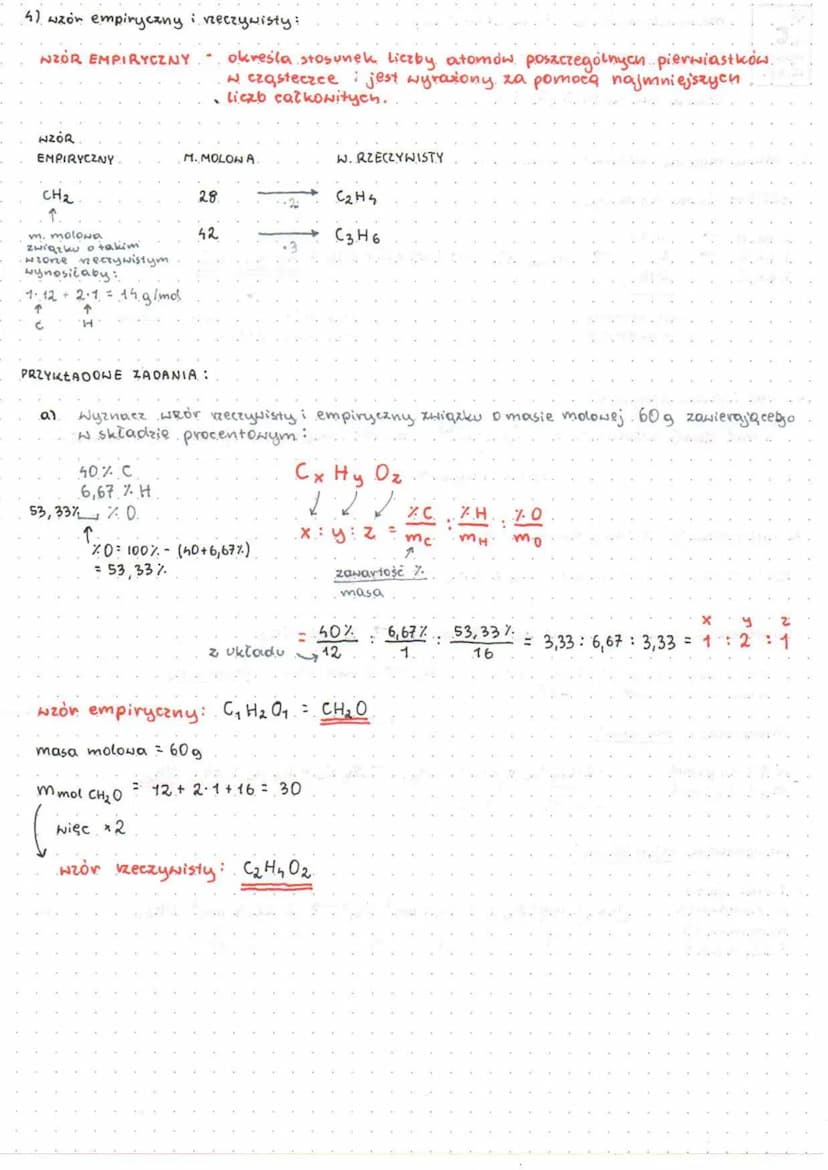 4) wzór empiryczny i rzeczywisty:
WZÓR EMPIRYCZNY - określa stosunek liczby atomów poszczególnych pierwiastków
w cząsteczce i jest wyrażony za pomocą najmniejszych
liczb całkowitych.
WZÓR
EMPIRYCZNY M. MOLOWA W. RZECZYWISTY
CH2 28 ·2 C2H4
↑
42 ·3 C3H6
m. molowa
związku o takim
wzorze rzeczywistym
wynosiłaby:
1·12 + 2·1 = 14 g/mol
↑ ↑
C H
PRZYKŁADOWE ZADANIA:
a) Wyznacz wzór rzeczywisty i empiryczny związku o masie molowej 60g zawierającego
w składzie procentowym:
40% C
6,67 % H
53,33% % O
↑
%O = 100% - (40+6,67%)
= 53,33%
Cx Hy Oz
x : y : z = %C/mC : %H/mH : %O/mO
zawartość %
masa
x y z
= 40%/12 : 6,67%/1 : 53,33%/16 = 3,33 : 6,67 : 3,33 = 1 : 2 : 1
z układu
wzór empiryczny: C1H2O1 = CH2O
masa molowa = 60g
m mol CH2O = 12 + 2·1 + 16 = 30
więc ×2
wzór rzeczywisty: C2H4O2